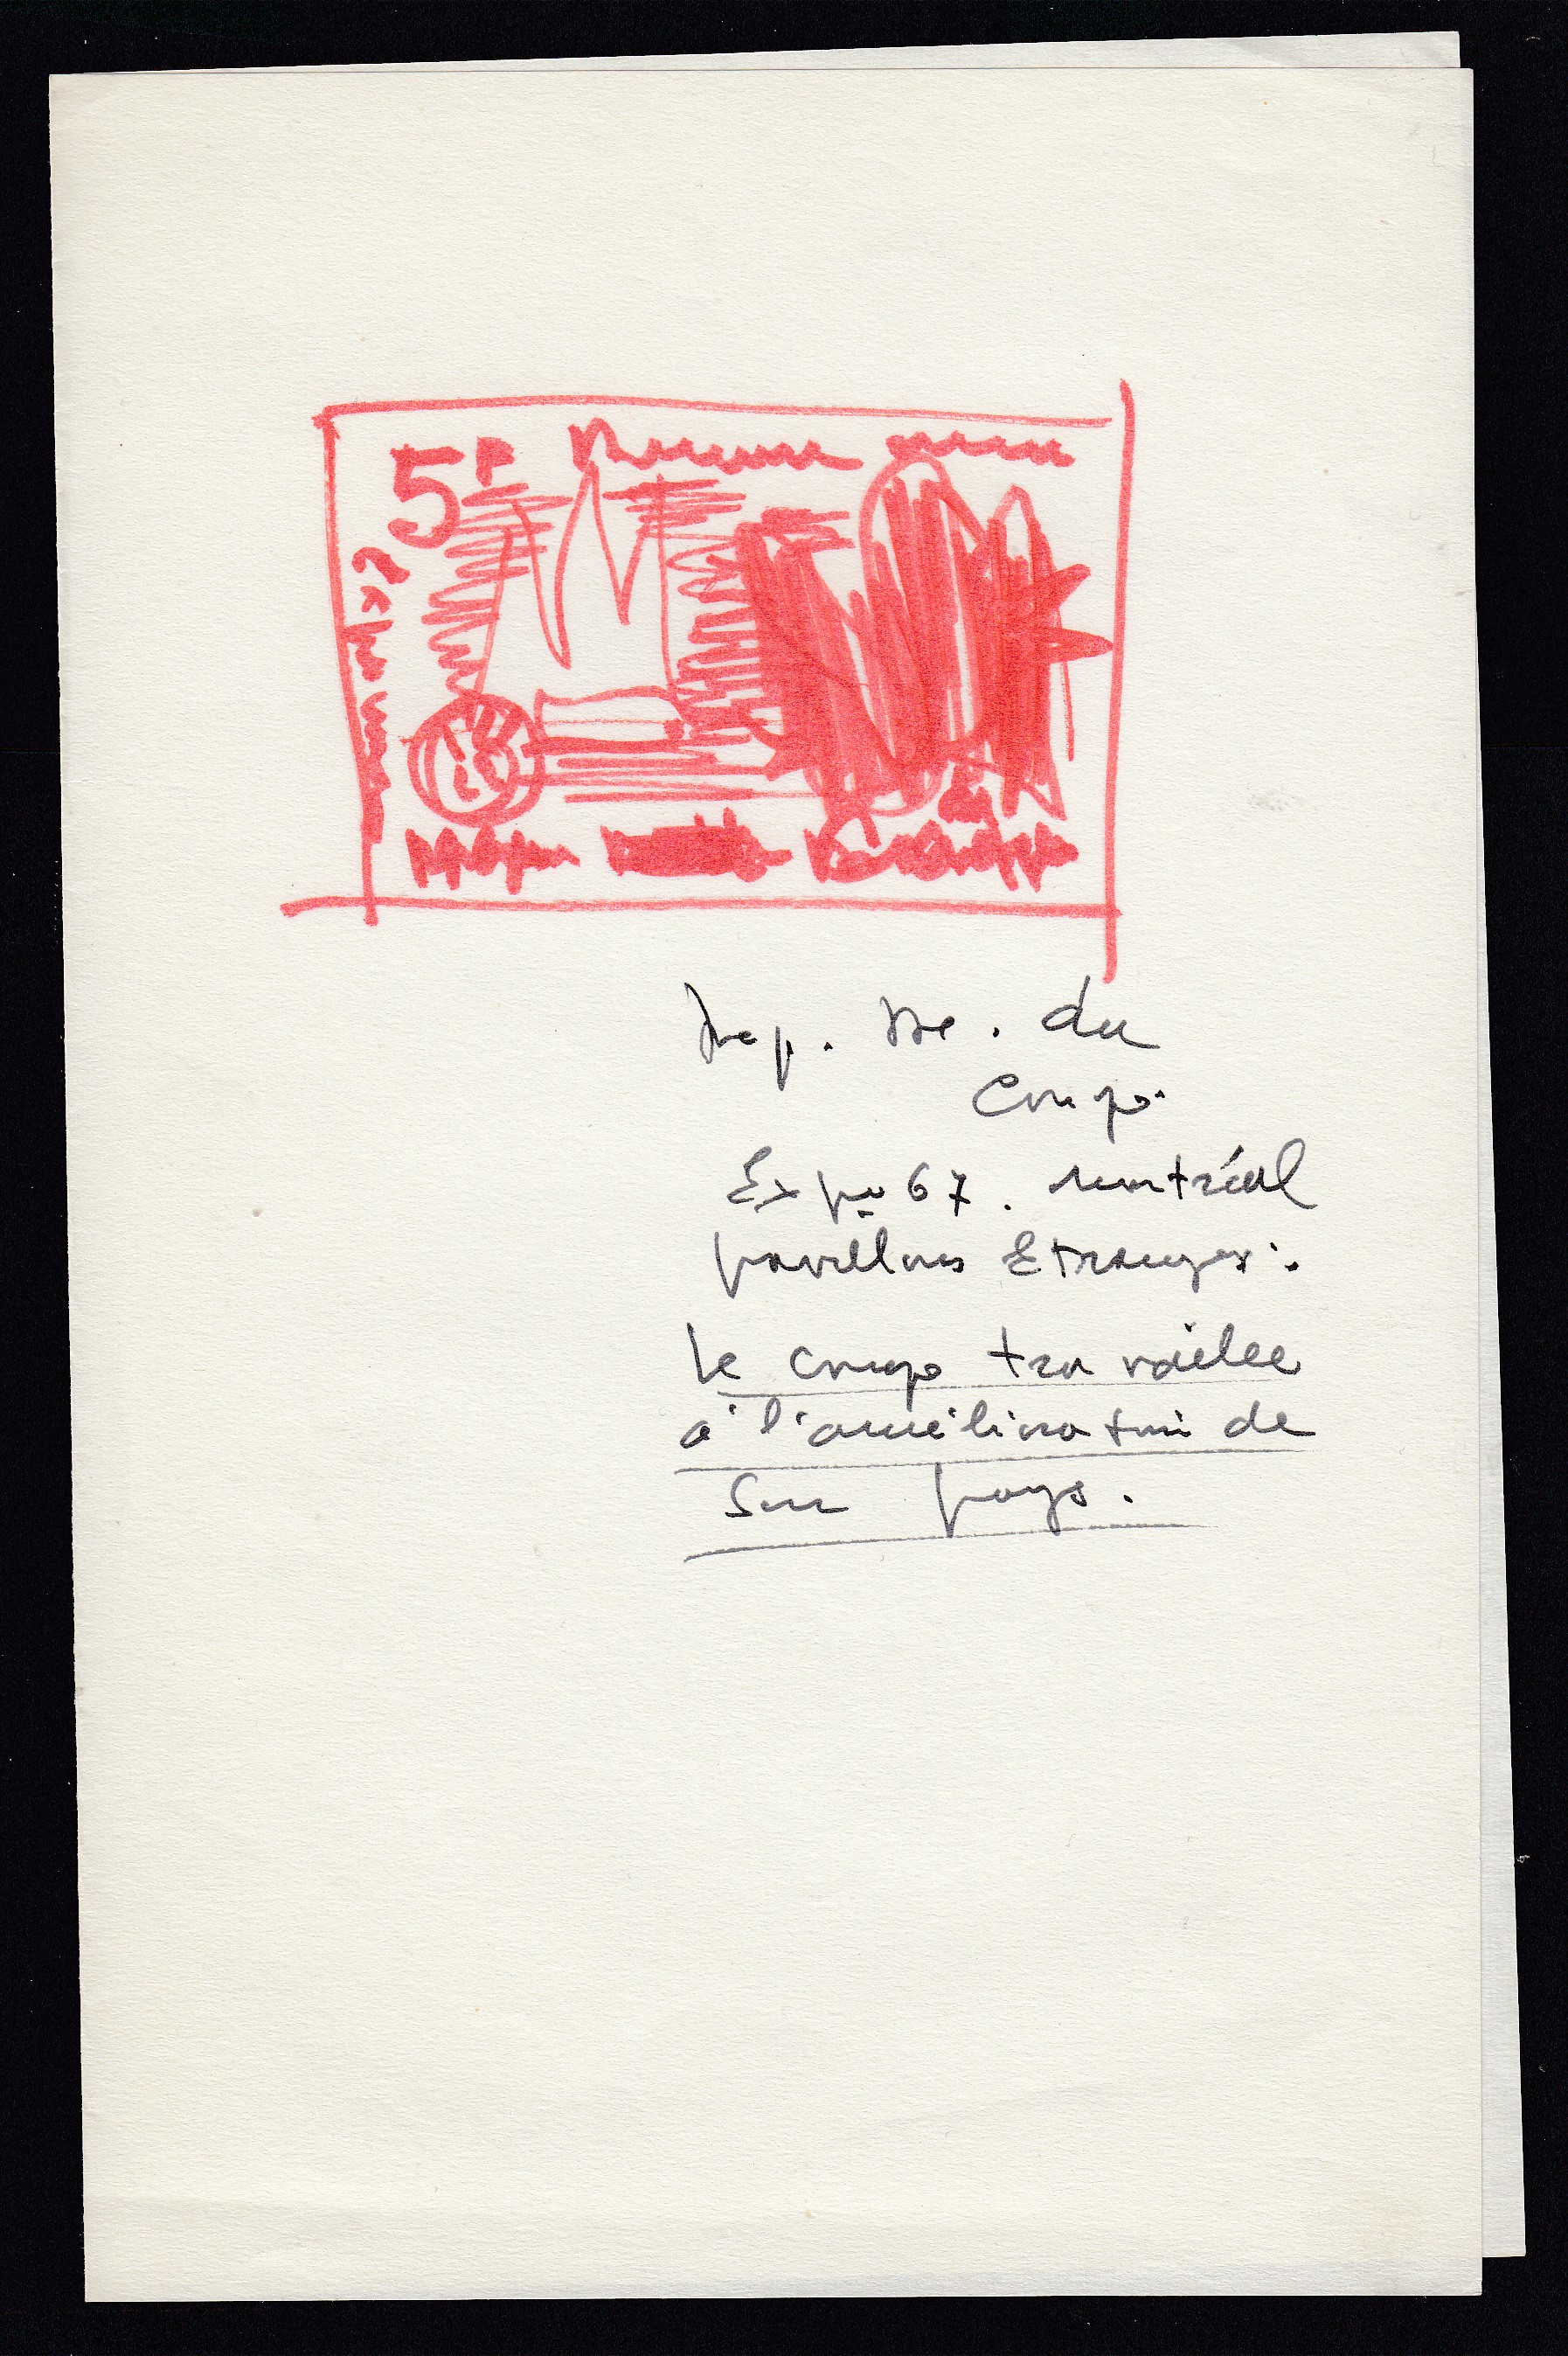 5F
Rep. De. du
Congo.
Expo 67. Montréal
pavillons Etrangers.
Le congo travaille
à l'amélioration de
son pays.